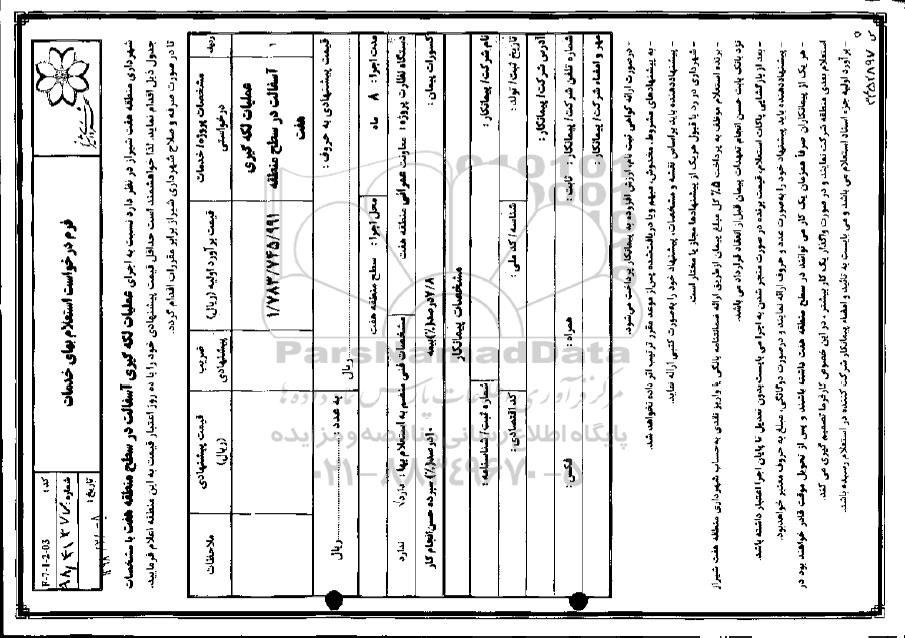 فرم درخواست استعلام بهای خدمات
کد : F-7-1-2-03
شماره :
تاریخ :
شهرداری منطقه هفت شیراز در نظر دارد نسبت به اجرای عملیات لکه گیری آسفالت در سطح منطقه هفت با مشخصات
جدول ذیل اقدام نماید. لذا خواهشمند است حداقل قیمت پیشنهادی خود را با ده روز اعتبار قیمت به این منطقه اعلام فرمایید.
تا در صورت صرفه و صلاح شهرداری شیراز برابر مقررات اقدام گردد.
ردیف مشخصات پروژه/ خدمات درخواستی قیمت برآورد اولیه (ریال) ضریب پیشنهادی قیمت پیشنهادی (ریال) ملاحظات
۱ عملیات لکه گیری آسفالت در سطح منطقه هفت ۱/۷۸۳/۷۴۵/۹۹۱
قیمت پیشنهادی به حروف : ریال به عدد : ریال
مدت اجرا : ۸ ماه محل اجرا : سطح منطقه هفت مشخصات فنی منضم به استعلام بها : دارد ندارد
دستگاه نظارت پروژه : معاونت عمرانی منطقه هفت
کسورات پیمان : ۷/۸درصد(٪)بیمه ۱۰درصد(٪)سپرده حسن انجام کار
مشخصات پیمانکار
نام شرکت/ پیمانکار : شماره ثبت/ شناسنامه :
تاریخ ثبت/ تولد : شناسه/ کد ملی : کد اقتصادی :
آدرس شرکت/ پیمانکار :
شماره تلفن شرکت/ پیمانکار : ثابت : همراه : فکس :
مهر و امضاء شرکت/ پیمانکار :
- درصورت ارائه گواهی ثبت نام، ارزش افزوده به پیمانکار پرداخت می‌شود.
- به پیشنهادهای مشروط، مخدوش، مبهم و یا دریافت‌شده پس‌از موعد مقرر ترتیب اثر داده نخواهد شد.
- پیشنهاددهنده باید براساس نقشه و مشخصات، پیشنهاد خود را به‌صورت کتبی ارائه نماید.
- شهرداری در رد یا قبول هریک از پیشنهادها مجاز یا مختار است.
- برنده استعلام موظف به پرداخت ۵٪ کل مبلغ پیمان ازطریق ارائه ضمانتنامه بانکی یا واریز نقدی به‌حساب شهرداری منطقه هفت شیراز
نزد بانک بابت حسن انجام تعهدات پیمان قبل از انعقاد قرارداد می باشد.
- بعد از بازگشایی پاکات استعلام، قیمت برنده در صورت منجر شدن به اجرا می بایست بدون تعدیل تا پایان اجرا اعتبار داشته باشد.
- پیشنهاددهنده باید پیشنهاد خود را به‌صورت عدد و حروف ارائه نمایند و درصورت دوگانگی، مبلغ به حروف معتبر خواهدبود.
- هر یک از پیمانکاران صرفاً همزمان یک کار می توانند در سطح منطقه هفت داشته باشند و پس از تحویل موقت قادر خواهند بود در
استعلام بعدی منطقه شرکت نمایند و در صورت واگذار یک کار بیشتر، در این خصوص کارفرما تصمیم گیری می کند.
- برآورد اولیه جزء اسناد استعلام می باشد و می بایست به تائید و امضاء پیمانکار شرکت کننده در استعلام رسیده باشد.
ParsNamadData
پایگاه اطلاع رسانی مناقصه و مزایده
۰۲۱-۸۸۳۴۹۶۷۰-۵